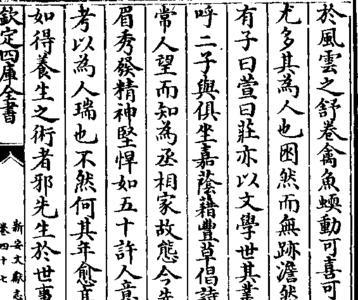 於風雲之舒卷禽魚蝡動可喜可
尤多其為人也困然而無跡澹然
有子曰萱曰莊亦以文學世其業
呼二子與俱坐嘉蔭藉豊草倡詩
常人望而知為丞相家故態今先
眉秀發精神堅悍如五十許人意
考以為人瑞也不然何其年愈
如得養生之術者邪先生於世事
欽定四庫全書
新安文獻志
卷四十七